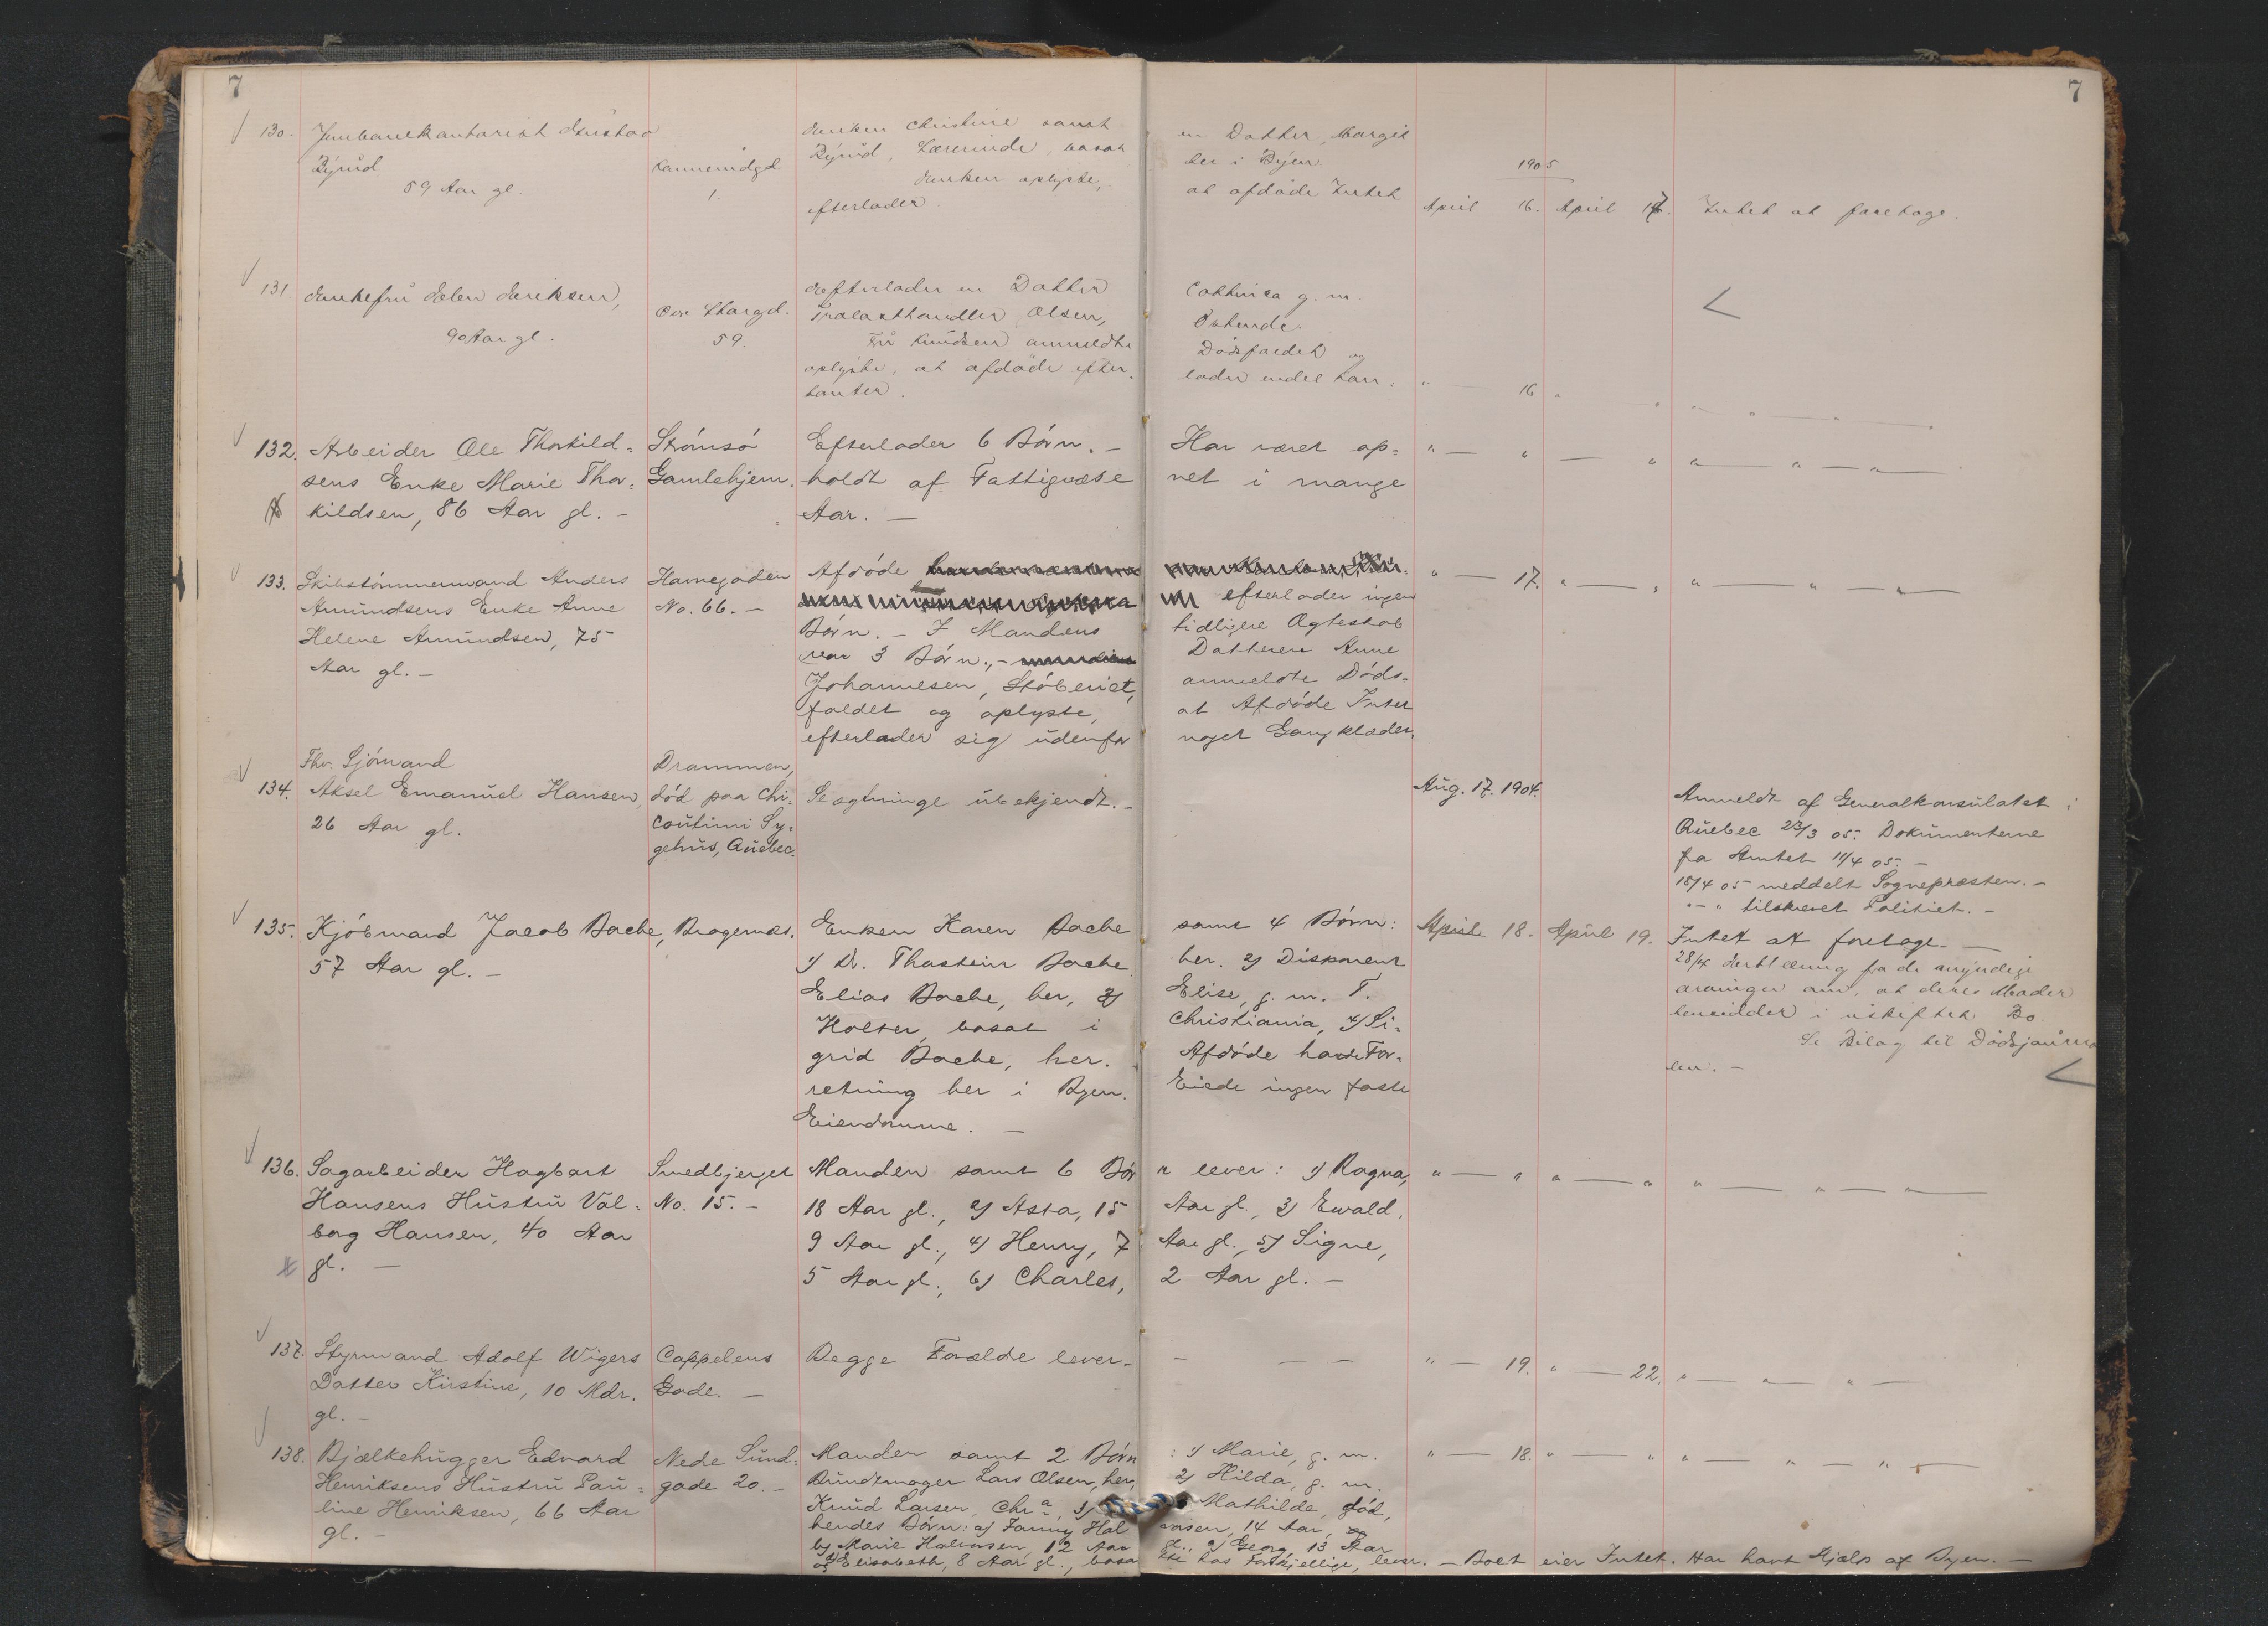 7
7
130. Gustav
Rynid
59 Aar gl.
1.
Enken Christine samt
Lærerinde, bosat
Enken oplyste,
efterlader
en Datter, Margit
her i Byen.
at afdøde Intet
1905
April 16. April 17. Intet at foretage.
131. Enkefru Helen Henriksen,
90 Aar gl.
Øvre Storgd.
59.
Efterlader en Datter
Trælasthandler Olsen,
Fru Knudsen anmeldte
oplyste, at afdøde efter-
tanter.
g. m.
Dødsfaldet og
lader endel kon-
" 16 "
132. Arbeider Ole Thorkild-
sens Enke Marie Thor-
kildsen, 86 Aar gl. -
Strömsö
Gamlehjem.
Efterlader 6 Börn. -
holdt af Fattigvæse
Aar. -
Har været op-
net i mange
" — " — " " — " — " —
133. Skibstömmermand Anders
Amundsens Enke Anne
Helene Amundsen, 75
Aar gl. -
Havnegaden
No. 66. -
Afdöde
Börn. - I Mandens
var 3 Börn, -
Johannesen, Stöberiet,
faldet og oplyste,
efterlader sig udenfor
efterlader ingen
tidligere Ægteskab
Datteren Anne
anmeldte Döds-
at Afdöde Intet
noget Gangklæder.
" — 17. " — " " — " — " —
134. Fhv. Sjömand
Aksel Emanuel Hansen,
26 Aar gl.
Drammen,
död paa Chi-
coutimi Sy-
gehus, Quebec.
Slægtninge ubekjendt. -
Aug. 17. 1904.
Anmeldt af Generalkonsulatet i
Quebec 23/3 05. Dokumenterne
fra Amtet 11/4 05. -
15/4 05 meddelt Sognepresten. -
" - " tilskrevet Politiet. -
135. Kjöbmand Jacob Bache,
57 Aar gl. -
Bragernæs.
Enken Karen Bache
1) Dr. Thorstein Bache
Elias Bache, her, 3)
Holter, bosat i
grid Bache, her.
retning her i Byen.
Eiendomme. -
samt 4 Börn:
her. 2) Disponent
Elise, g. m. T.
Christiania, 4) Si-
Afdöde havde For-
Eiede ingen faste
April 18. April 19. Intet at foretage. -
28/4 Erklæring fra de myndige
arvinger om, at deres Moder
hensidder i uskiftet Bo.
Se Bilag til Dødsjourna
len. -
136. Sagarbeider Hagbart
Hansens Hustru Val-
borg Hansen, 40 Aar
gl. -
Smedbjerget
No. 15. -
Manden samt 6 Bör
18 Aar gl., 2) Asta, 15
9 Aar gl., 4) Henry, 7
5 Aar gl., 6) Charles,
n lever: 1) Ragna,
Aar gl., 3) Ewald,
Aar gl., 5) Signe,
2 Aar gl. -
" — " " — " " — " — " —
137. Styrmand Adolf Wigers
Datter Kirstine, 10 Mdr.
gl. -
Cappelens
Gade. -
Begge Forældre lever. -
- - -
" — 19. " — 22. " — " — " —
138. Bjælkehugger Edvard
Henriksens Hustru Pau-
line Henriksen, 66 Aar
gl. -
Nede Sund-
gade 20. -
Manden samt 2 Börn
Bundtmager Lars Olsen, her,
Knud Larsen, Chra, 3)
hendes Börn: a) Fanny Hal
b) Marie Halvorsen, 12 Aar
og d) Elisabeth, 8 Aar gl., bosa
: 1) Marie, g. m.
2) Hilda, g. m.
Mathilde, död,
vorsen, 14 Aar,
gl., c) Georg, 13 Aar
tte hos Forskjellige, lever. - Boet eier Intet. Har havt Hjælp af Byen. -
" — 18. " — " " — " — " —